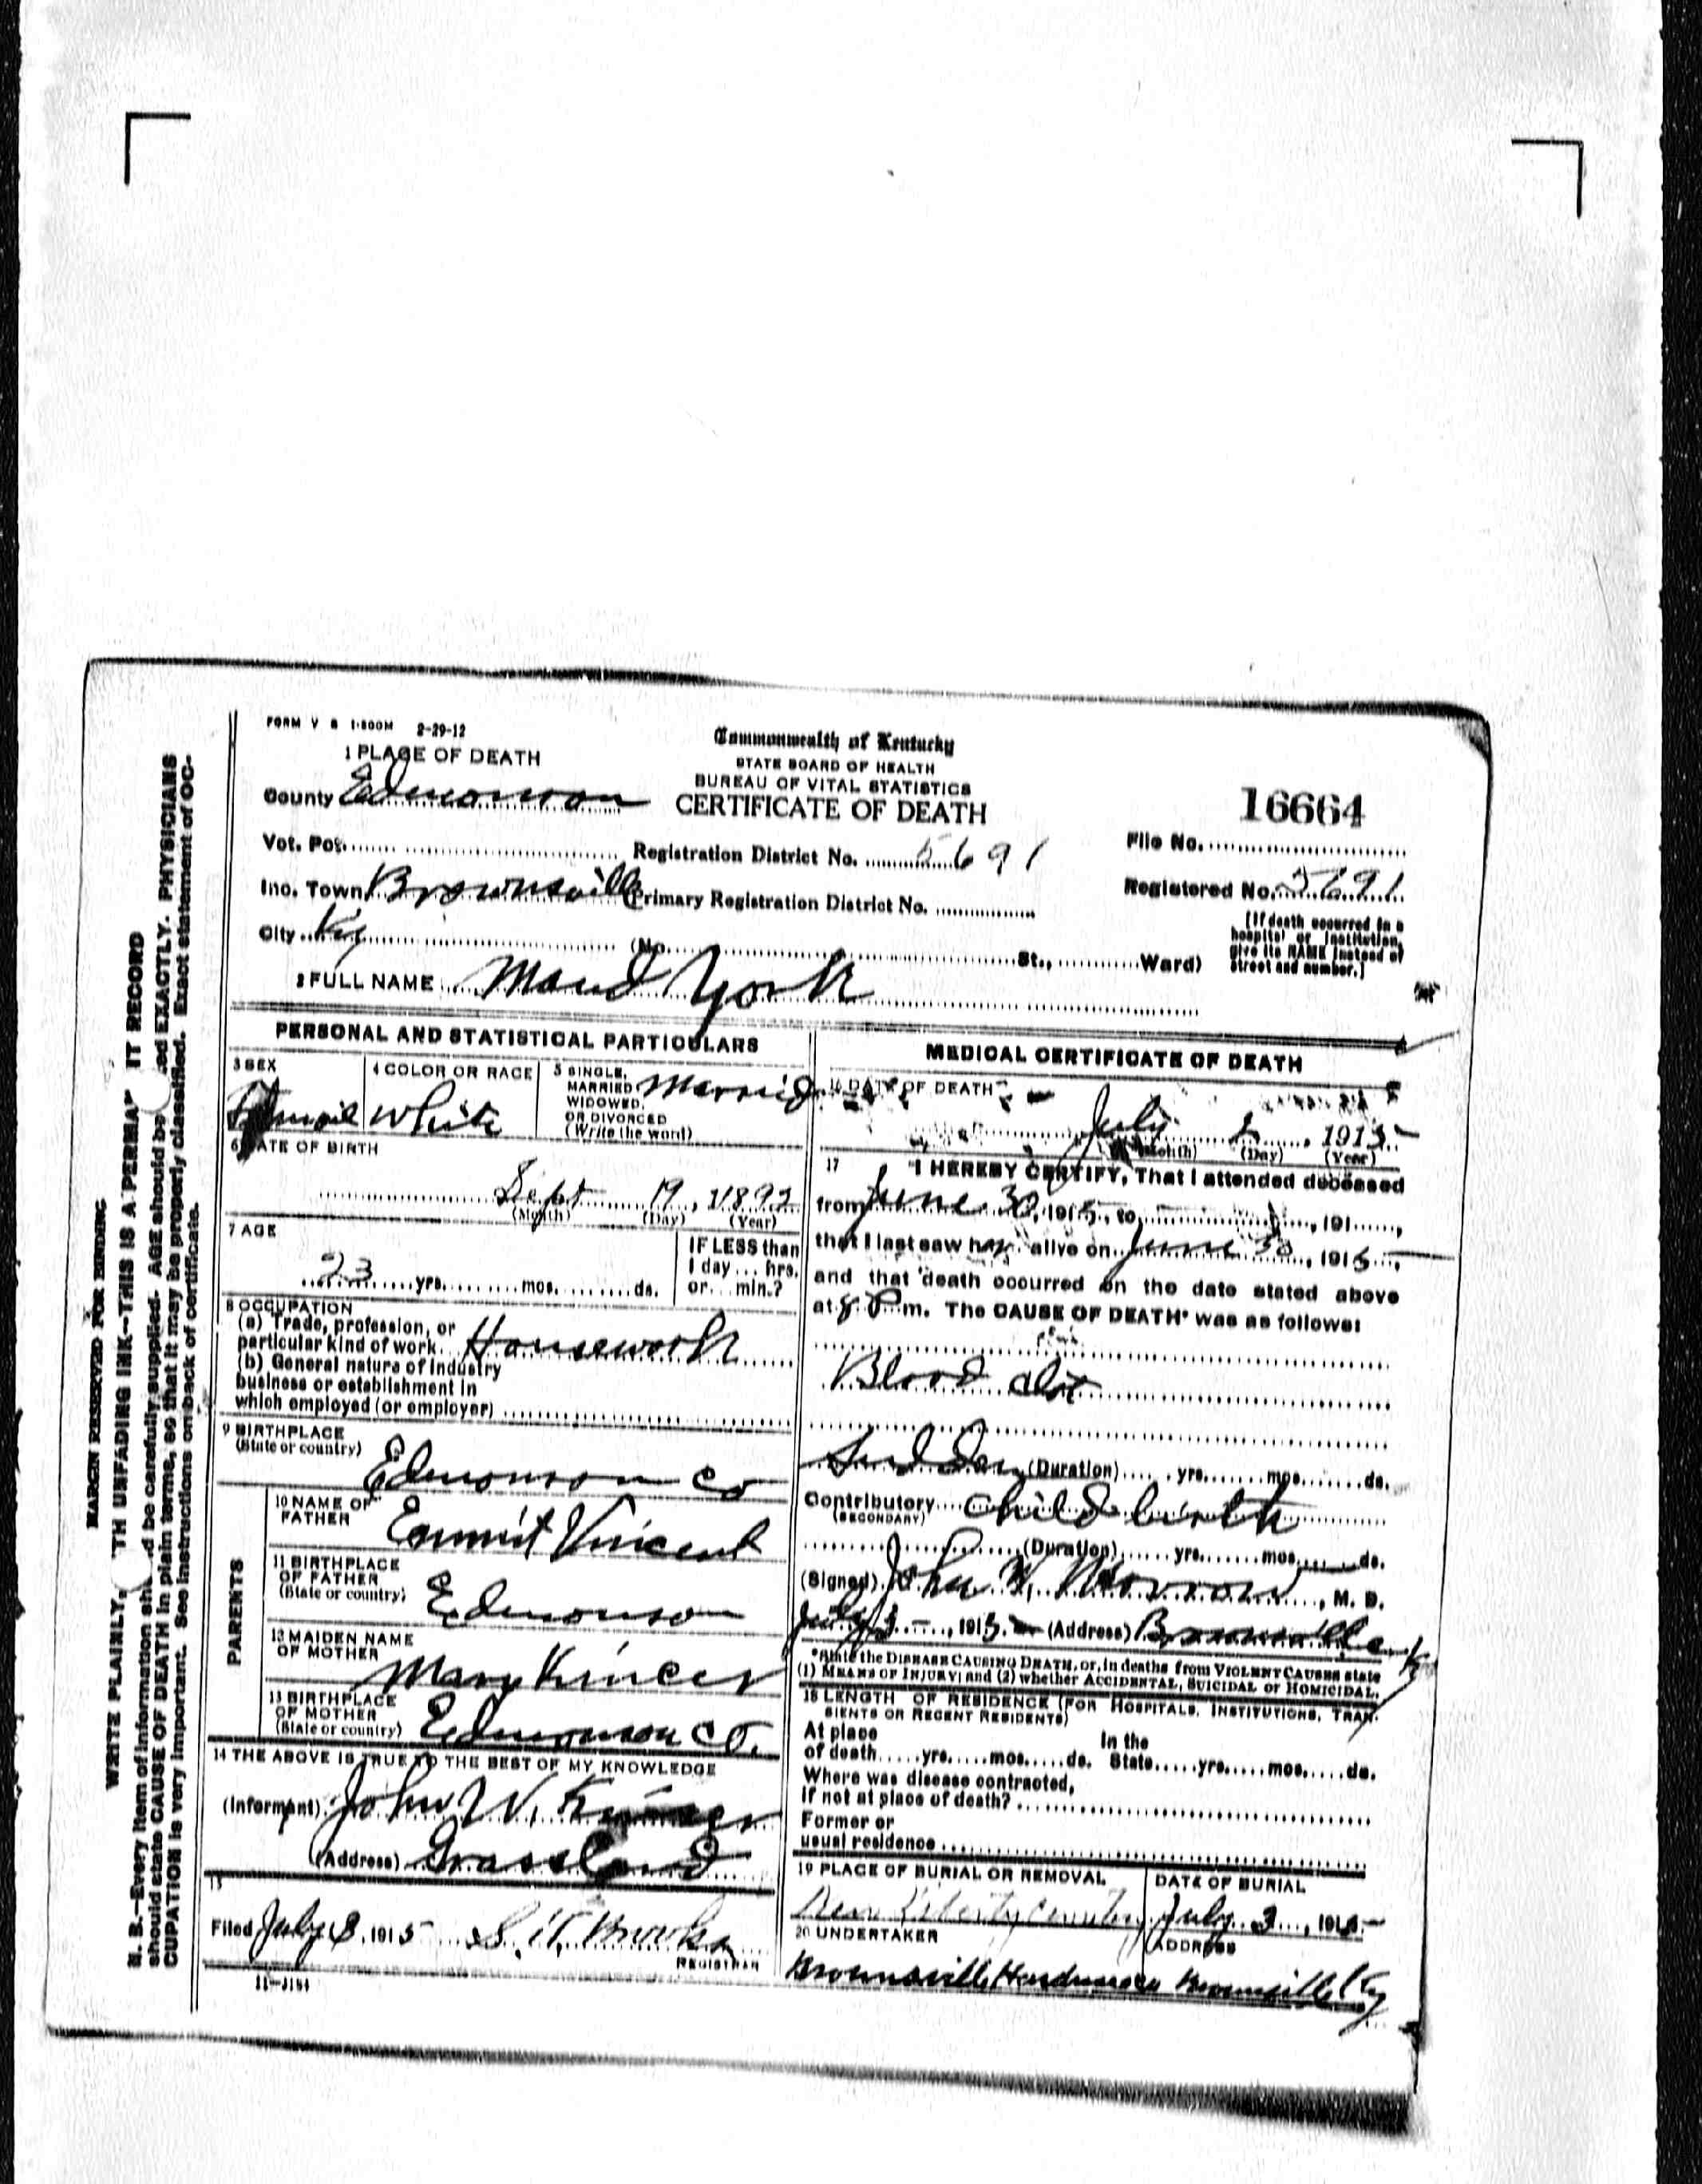 FORM V S 1-500M 2-29-12
1 PLACE OF DEATH
Commonwealth of Kentucky
STATE BOARD OF HEALTH
BUREAU OF VITAL STATISTICS
CERTIFICATE OF DEATH
County Edmonson
16664
Vot. Pct. Registration District No. 5691 File No.
Inc. Town Brownsville Primary Registration District No. Registered No. 5691
City Ky (No. St., Ward)
[If death occurred in a
hospital or institution,
give its NAME instead of
street and number.]
2 FULL NAME Maud York
PERSONAL AND STATISTICAL PARTICULARS
3 SEX
4 COLOR OR RACE White
5 SINGLE,
MARRIED
WIDOWED,
OR DIVORCED
(Write the word)
Married
6 DATE OF BIRTH
Sept 19, 1892
(Month) (Day) (Year)
7 AGE
23 yrs. mos. ds.
IF LESS than
1 day ... hrs.
or ... min.?
8 OCCUPATION
(a) Trade, profession, or
particular kind of work Housework
(b) General nature of industry
business or establishment in
which employed (or employer)
9 BIRTHPLACE
(State or country)
Edmonson Co
PARENTS
10 NAME OF
FATHER
Emmit Vincent
11 BIRTHPLACE
OF FATHER
(State or country)
Edmonson
12 MAIDEN NAME
OF MOTHER
Mary Kincer
13 BIRTHPLACE
OF MOTHER
(State or country)
Edmonson Co.
14 THE ABOVE IS TRUE TO THE BEST OF MY KNOWLEDGE
(Informant) John W.
(Address) Grassland
15
Filed July 8, 1915 S. T. Brooks
REGISTRAR
11-3184
MEDICAL CERTIFICATE OF DEATH
16 DATE OF DEATH
July 1915
(Month) (Day) (Year)
17 I HEREBY CERTIFY, That I attended deceased
from June 30, 1915, to , 191 ,
that I last saw her alive on June 30, 1915,
and that death occurred on the date stated above
at 8 P m. The CAUSE OF DEATH* was as follows:
Blood clot
Sudden (Duration) yrs. mos. ds.
Contributory Child birth
(SECONDARY)
(Duration) yrs. mos. ds.
(Signed) John W. , M. D.
July 3, 1915 (Address) Brownsville Ky
*State the DISEASE CAUSING DEATH, or, in deaths from VIOLENT CAUSES state
(1) MEANS OF INJURY; and (2) whether ACCIDENTAL, SUICIDAL or HOMICIDAL.
18 LENGTH OF RESIDENCE (FOR HOSPITALS, INSTITUTIONS, TRAN-
SIENTS OR RECENT RESIDENTS)
At place
of death yrs. mos. ds.
In the
State yrs. mos. ds.
Where was disease contracted,
If not at place of death?
Former or
usual residence
19 PLACE OF BURIAL OR REMOVAL
New Liberty Cemetery
DATE OF BURIAL
July 3, 1915
20 UNDERTAKER
Brownsville Hardware
ADDRESS
Brownsville Ky
MARGIN RESERVED FOR BINDING
WRITE PLAINLY, TH UNFADING INK—THIS IS A PERMA IT RECORD
N. B.—Every item of information sh d be carefully supplied. AGE should be ed EXACTLY. PHYSICIANS
should state CAUSE OF DEATH in plain terms, so that it may be properly classified. Exact statement of OC-
CUPATION is very important. See instructions on back of certificate.